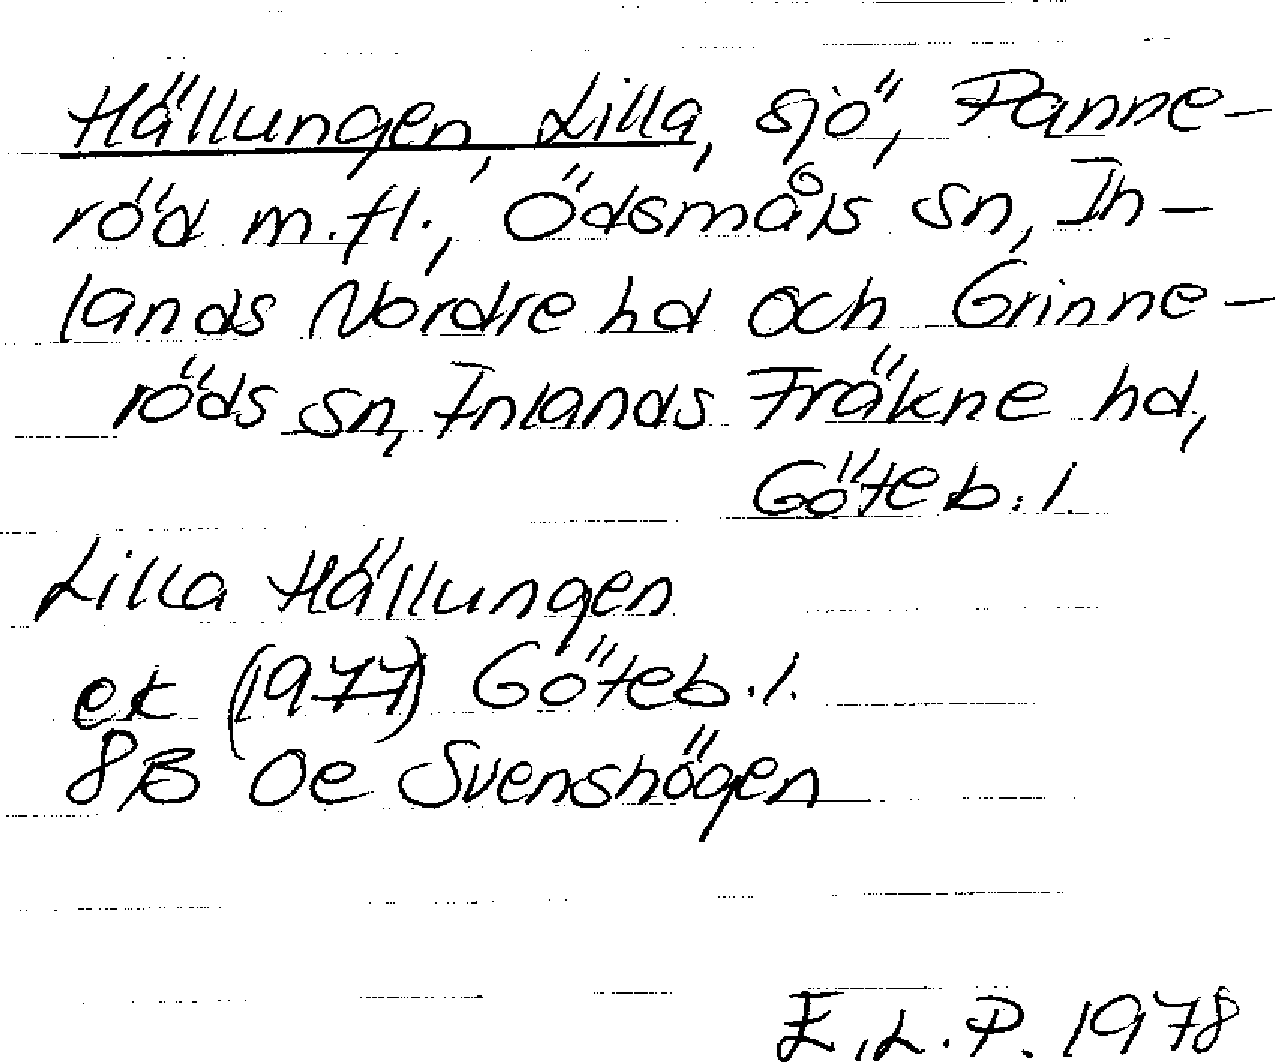 Hällungen, Lilla, sjö, Panne-
röd m.fl., Ödsmåls sn, In-
lands Nordre hd och Grinne-
röds sn, Inlands Fräkne hd,
Göteb. l.
Lilla Hällungen
ek (1977) Göteb. l.
8B 0e Svenshögen
E.L.P. 1978